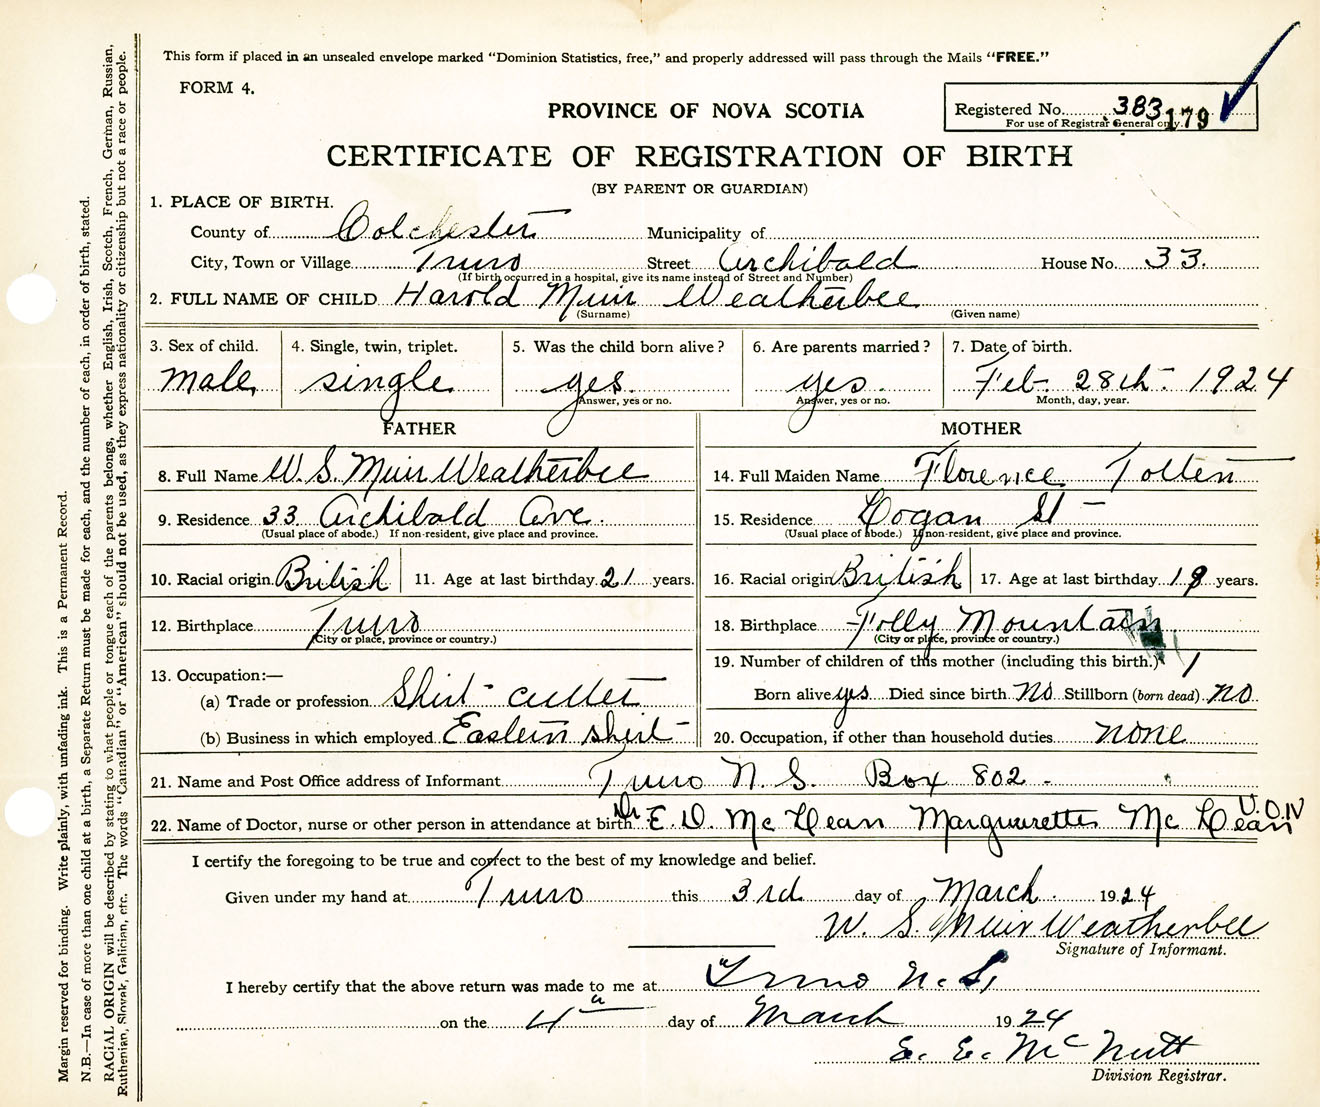 This form if placed in an unsealed envelope marked "Dominion Statistics, free," and properly addressed will pass through the Mails "FREE."
FORM 4.
PROVINCE OF NOVA SCOTIA
Registered No. 383 179
For use of Registrar General only.
CERTIFICATE OF REGISTRATION OF BIRTH
(BY PARENT OR GUARDIAN)
1. PLACE OF BIRTH.
County of Colchester Municipality of
City, Town or Village Truro Street Archibald House No. 33.
(If birth occurred in a hospital, give its name instead of Street and Number)
2. FULL NAME OF CHILD Harold Muir Weatherbee
(Surname) (Given name)
3. Sex of child. 4. Single, twin, triplet. 5. Was the child born alive? 6. Are parents married? 7. Date of birth.
male single yes. yes. Feb. 28th 1924
Answer, yes or no. Answer, yes or no. Month, day, year.
FATHER MOTHER
8. Full Name W. S. Muir Weatherbee 14. Full Maiden Name Florence Totten
9. Residence 33 Archibald Ave. 15. Residence Logan St
(Usual place of abode.) If non-resident, give place and province. (Usual place of abode.) If non-resident, give place and province.
10. Racial origin British 11. Age at last birthday 21 years. 16. Racial origin British 17. Age at last birthday 19 years.
12. Birthplace Truro 18. Birthplace Folly Mountain
(City or place, province or country.) (City or place, province or country.)
13. Occupation:— 19. Number of children of this mother (including this birth.) 1
(a) Trade or profession Shirt cutter Born alive yes Died since birth no Stillborn (born dead) no
(b) Business in which employed Eastern Shirt 20. Occupation, if other than household duties none
21. Name and Post Office address of Informant Truro N. S. Box 802.
22. Name of Doctor, nurse or other person in attendance at birth Dr. E. D. McLean Marguerette McLean V.O.N
I certify the foregoing to be true and correct to the best of my knowledge and belief.
Given under my hand at Truro this 3rd day of March 1924
W. S. Muir Weatherbee
Signature of Informant.
I hereby certify that the above return was made to me at Truro N. S.
on the 4th day of March 1924
E. E. McNutt
Division Registrar.
Margin reserved for binding. Write plainly, with unfading ink. This is a Permanent Record.
N.B.—In case of more than one child at a birth, a Separate Return must be made for each, and the number of each, in order of birth, stated.
RACIAL ORIGIN will be described by stating to what people or tongue each of the parents belongs, whether English, Irish, Scotch, French, German, Russian,
Ruthenian, Slovak, Galician, etc. The words "Canadian" or "American" should not be used, as they express nationality or citizenship but not a race or people.